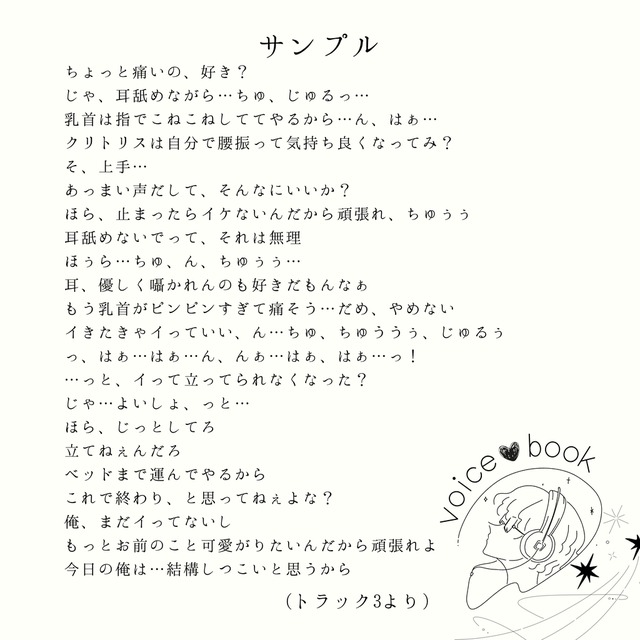 サンプル
ちょっと痛いの、好き？
じゃ、耳舐めながら…ちゅ、じゅるっ…
乳首は指でこねこねしててやるから…ん、はぁ…
クリトリスは自分で腰振って気持ち良くなってみ？
そ、上手…
あっまい声だして、そんなにいいか？
ほら、止まったらイケないんだから頑張れ、ちゅぅぅ
耳舐めないでって、それは無理
ほぅら…ちゅ、ん、ちゅぅぅ…
耳、優しく囁かれんのも好きだもんなぁ
もう乳首がピンピンすぎて痛そう…だめ、やめない
イきたきゃイっていい、ん…ちゅ、ちゅううぅ、じゅるぅ
っ、はぁ…はぁ…ん、んぁ…はぁ、はぁ…っ！
…っと、イって立ってられなくなった？
じゃ…よいしょ、っと…
ほら、じっとしてろ
立てねぇんだろ
ベッドまで運んでやるから
これで終わり、と思ってねぇよな？
俺、まだイってないし
もっとお前のこと可愛がりたいんだから頑張れよ
今日の俺は…結構しつこいと思うから
（トラック3より）
voice book